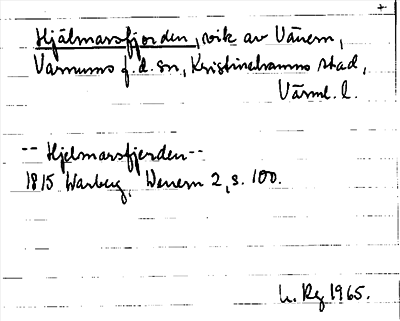 +
Hjälmarsfjorden, vik av Vänern,
Varnums f.d. sn, Kristinehamns stad,
Värml. l.
-- Hjelmarsfjerden --
1815 Warberg, Wenern 2, s. 100.
1965.